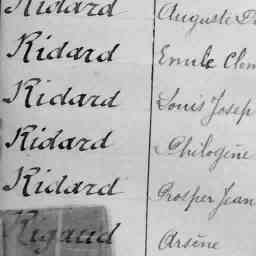 Ridard Auguste
Ridard Emile Clem
Ridard Louis Josep
Ridard Philogène
Ridard Prosper Jean
Rigaud Arsène